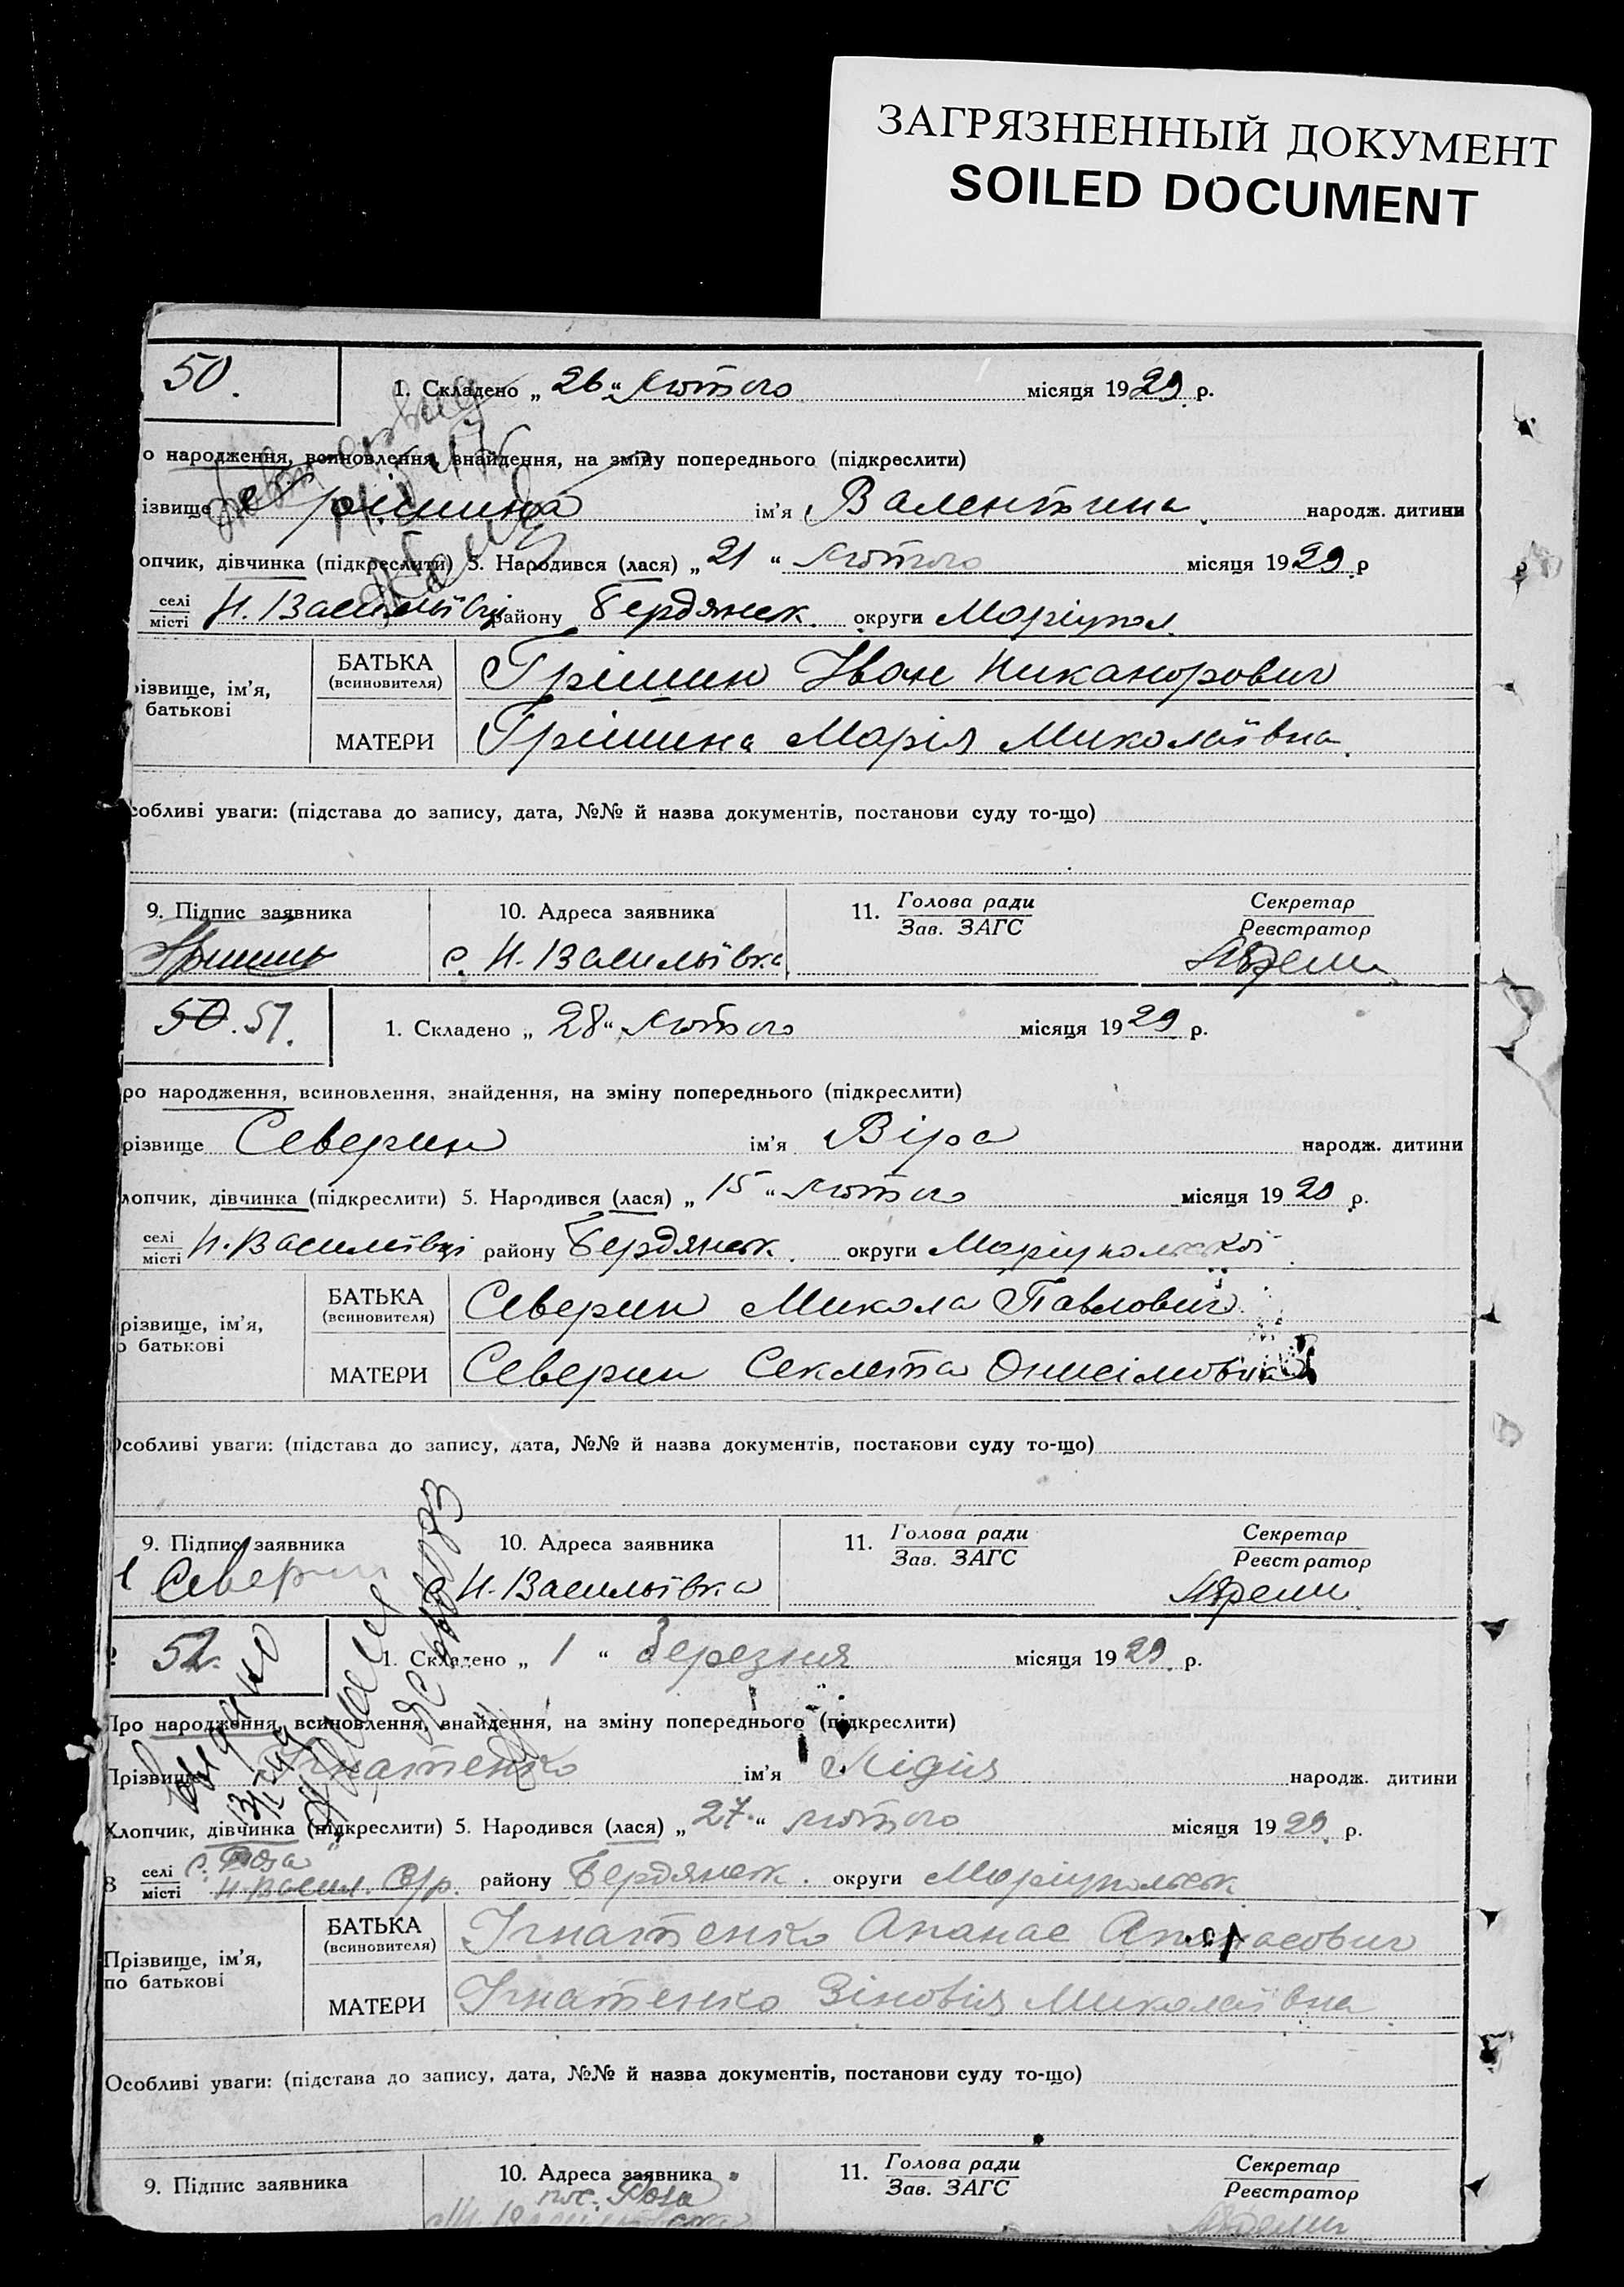 ЗАГРЯЗНЕННЫЙ ДОКУМЕНТ
SOILED DOCUMENT
50.
1. Складено „ 26 “ Лютого місяця 1929 р.
о народження, всиновлення, знайдення, на зміну попереднього (підкреслити)
ізвище Грішина ім’я Валентина народж. дитини
опчик, дівчинка (підкреслити) 5. Народився (лася) „ 21 “ Лютого місяця 1929 р
селі
місті Н. Василівці району Бердянськ. округи Маріупол.
різвище, ім’я,
батькові
БАТЬКА
(всиновителя) Грішин Іван Никанорович
МАТЕРИ Грішина Марія Миколаївна.
собливі уваги: (підстава до запису, дата, №№ й назва документів, постанови суду то-що)
9. Підпис заявника 10. Адреса заявника 11. Голова ради
Зав. ЗАГС Секретар
Реєстратор
с. Н. Василівка
50. 51.
1. Складено „ 28 “ Лютого місяця 1929 р.
ро народження, всиновлення, знайдення, на зміну попереднього (підкреслити)
різвище Северин ім’я Віра народж. дитини
лопчик, дівчинка (підкреслити) 5. Народився (лася) „ 15 “ Лютого місяця 1920 р.
селі
місті Н. Василівці району Бердянськ. округи Маріупольської
різвище, ім’я,
о батькові
БАТЬКА
(всиновителя) Северин Микола Павлович
МАТЕРИ Северин Секлета Онисімовна
Особливі уваги: (підстава до запису, дата, №№ й назва документів, постанови суду то-що)
9. Підпис заявника 10. Адреса заявника 11. Голова ради
Зав. ЗАГС Секретар
Реєстратор
Северин с. Н. Василівка
52.
1. Складено „ 1 “ Березня місяця 1929 р.
Про народження, всиновлення, знайдення, на зміну попереднього (підкреслити)
Прізвище Ігнатенко ім’я Лідія народж. дитини
Хлопчик, дівчинка (підкреслити) 5. Народився (лася) „ 27 “ Лютого місяця 1929 р.
с. Роза
В селі
місті Н-Васил. С/р. району Бердянськ. округи Маріупольськ
Прізвище, ім’я,
по батькові
БАТЬКА
(всиновителя) Ігнатенко Апанас Апанасович
МАТЕРИ Ігнатенко Зіновія Миколаївна
Особливі уваги: (підстава до запису, дата, №№ й назва документів, постанови суду то-що)
9. Підпис заявника 10. Адреса заявника 11. Голова ради
Зав. ЗАГС Секретар
Реєстратор
пос. Роза